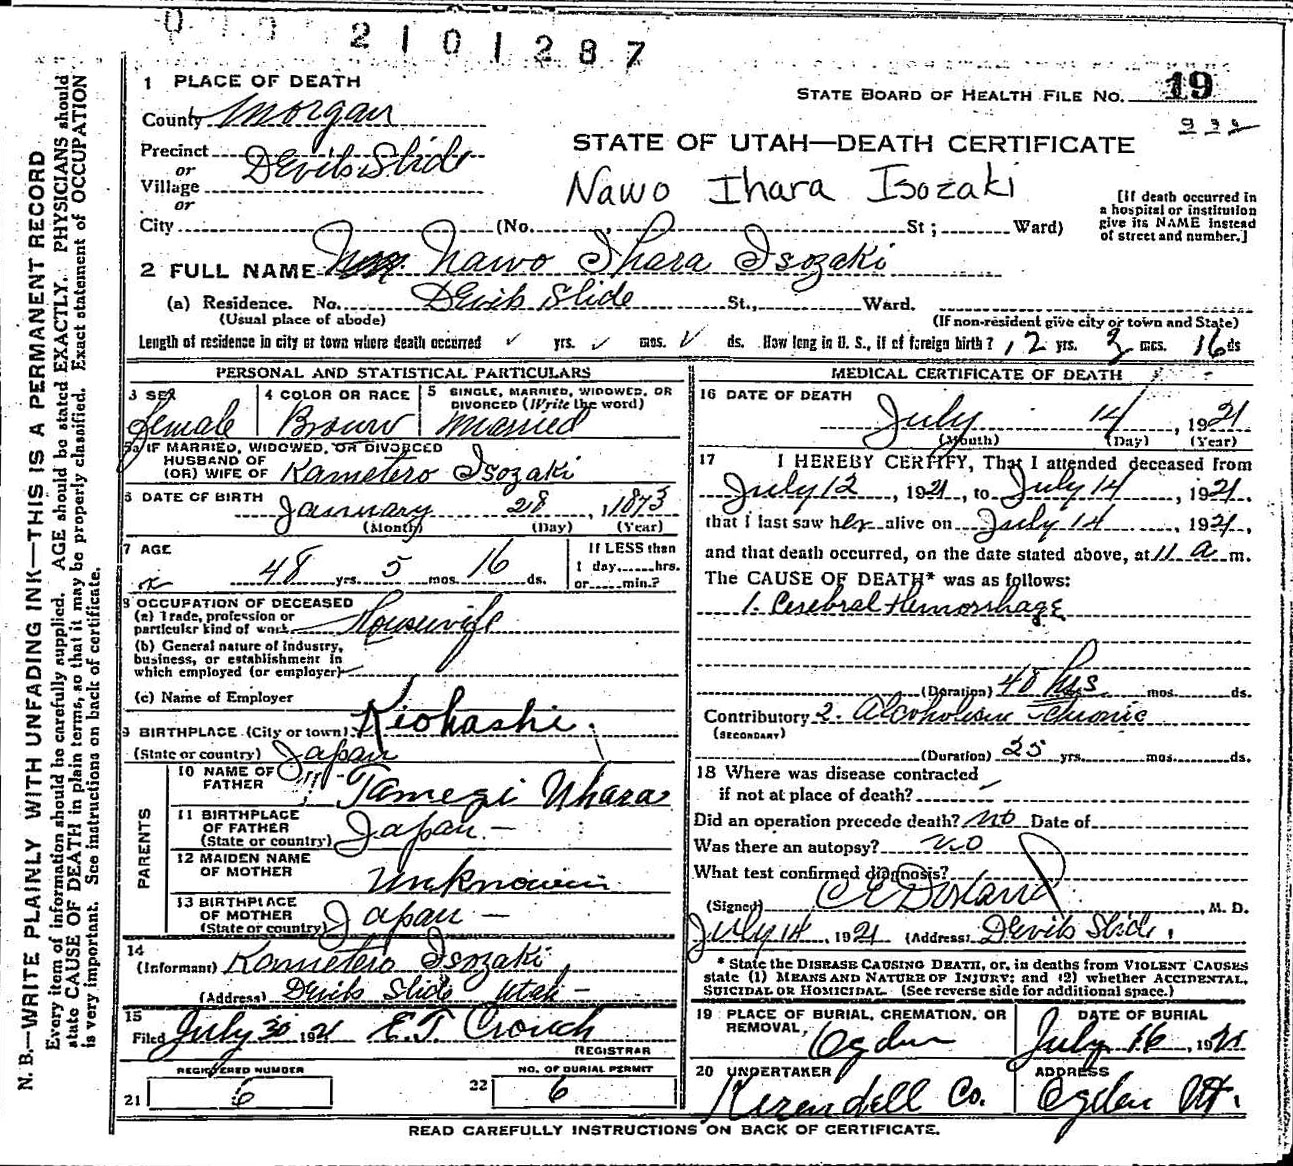 2101287
1 PLACE OF DEATH
STATE BOARD OF HEALTH FILE NO. 19
County Morgan
STATE OF UTAH—DEATH CERTIFICATE
Precinct or Village Devils Slide
Nawo Ihara Isozaki
[If death occurred in a hospital or institution give its NAME instead of street and number.]
or
City (No. , St ; Ward)
2 FULL NAME Nawo Ihara Isozaki
(a) Residence. No. Devils Slide St., Ward.
(Usual place of abode) (If non-resident give city or town and State)
Length of residence in city or town where death occurred yrs. mos. ds. How long in U. S., if of foreign birth? 12 yrs. 3 mos. 16 ds
PERSONAL AND STATISTICAL PARTICULARS
3 SEX Female
4 COLOR OR RACE Brown
5 SINGLE, MARRIED, WIDOWED, OR DIVORCED (Write the word) Married
5a IF MARRIED, WIDOWED, OR DIVORCED
HUSBAND OF
(OR) WIFE OF Kametero Isozaki
6 DATE OF BIRTH
January 28, 1873
(Month) (Day) (Year)
7 AGE
48 yrs. 5 mos. 16 ds.
If LESS than 1 day,......hrs. or......min.?
8 OCCUPATION OF DECEASED
(a) Trade, profession or particular kind of work Housewife
(b) General nature of industry, business, or establishment in which employed (or employer)
(c) Name of Employer
9 BIRTHPLACE (City or town) Kiohashi
(State or country) Japan
PARENTS
10 NAME OF FATHER Tamegi Uhara
11 BIRTHPLACE OF FATHER (State or country) Japan —
12 MAIDEN NAME OF MOTHER Unknown
13 BIRTHPLACE OF MOTHER (State or country) Japan —
14
(Informant) Kametero Isozaki
(Address) Devils Slide Utah —
15
Filed July 30 1921 E.T. Crouch
REGISTRAR
21 REGISTERED NUMBER 6
22 NO. OF BURIAL PERMIT 6
MEDICAL CERTIFICATE OF DEATH
16 DATE OF DEATH
July 14, 1921
(Month) (Day) (Year)
17 I HEREBY CERTIFY, That I attended deceased from
July 12, 1921, to July 14, 1921.
that I last saw her alive on July 14 1921,
and that death occurred, on the date stated above, at 11 a m.
The CAUSE OF DEATH* was as follows:
1. Cerebral Hemorrhage
(Duration) 48 hrs. mos. ds.
Contributory 2. Alcoholism Chronic
(SECONDARY)
(Duration) 25 yrs. mos. ds.
18 Where was disease contracted
if not at place of death?
Did an operation precede death? no Date of
Was there an autopsy? no
What test confirmed diagnosis?
(Signed) , M. D.
July 14, 1921 (Address) Devils Slide
* State the DISEASE CAUSING DEATH, or, in deaths from VIOLENT CAUSES
state (1) MEANS AND NATURE OF INJURY; and (2) whether ACCIDENTAL,
SUICIDAL OR HOMICIDAL. (See reverse side for additional space.)
19 PLACE OF BURIAL, CREMATION, OR REMOVAL, Ogden
DATE OF BURIAL July 16, 1921
20 UNDERTAKER Kirendell Co.
ADDRESS Ogden Ut.
READ CAREFULLY INSTRUCTIONS ON BACK OF CERTIFICATE.
N. B.—WRITE PLAINLY WITH UNFADING INK—THIS IS A PERMANENT RECORD
Every item of information should be carefully supplied. AGE should be stated EXACTLY. PHYSICIANS should
state CAUSE OF DEATH in plain terms, so that it may be properly classified. Exact statement of OCCUPATION
is very important. See instructions on back of certificate.